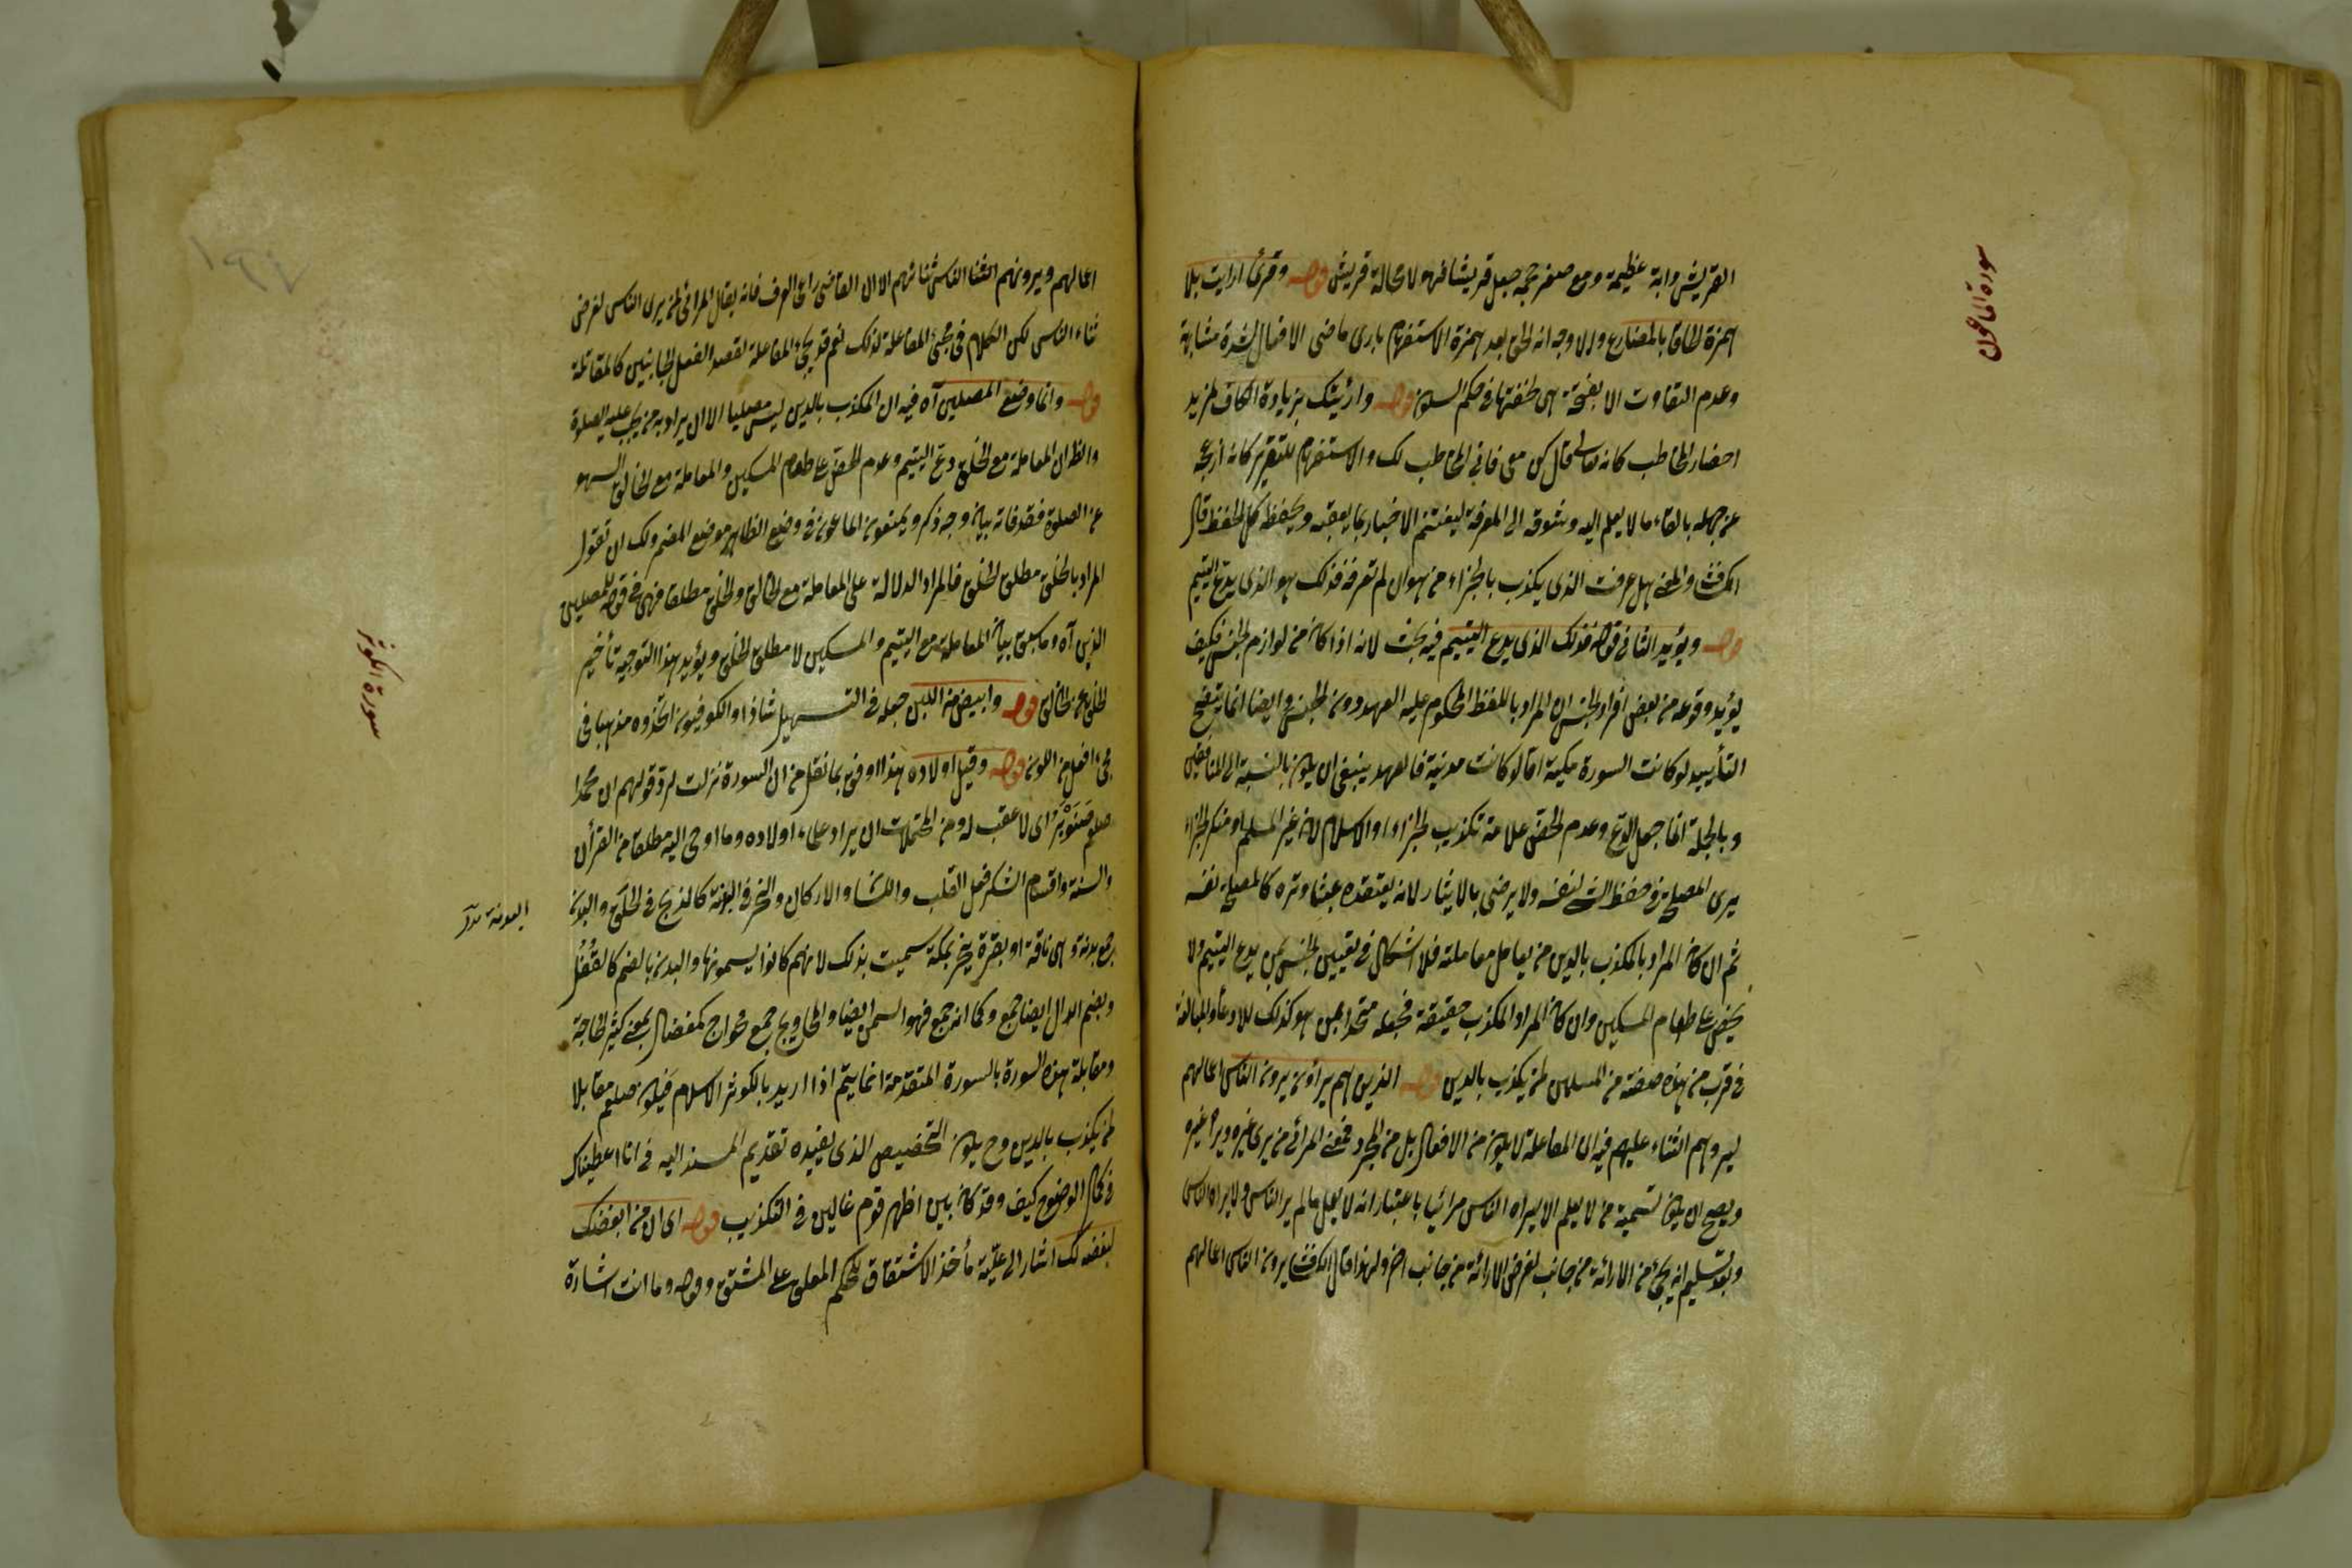 سورة الماعون
القريش دابة عظيمة ومع صغر حجمه جعل قريشا فهو لا محالة قريش قوله وقرئ ارايت بلا
همزة لحاقا بالمضارع ولا وجه انه لحق بعد همزة الاستفهام بارى ماضى الافعال لشدة مشابهة
وعدم التفاوت الا بفتحة هى لخفتها فى حكم السكون قوله وارئيتك بزيادة الكاف لمزيد
احضار المخاطب كانه قال كن معى فانى اخاطب لك والاستفهام للتقرير كانه
عن جهله بالقاء ما لا يعلم اليه وشوقه الى المعرفة ليغتنم الاخبار بما يعقبه ويحفظه كل الحفظ قال
الكشاف والمعنى هل عرفت الذى يكذب بالجزاء من هو ان لم تعرفه فذلك هو الذى يدع اليتيم
قوله ويؤيد الثانى قوله فذلك الذى يدع اليتيم فيه بحث لانه اذا كان من لوازم الجنس فكيف
يؤيد وقوعه من بعض افراد الجنس ان المراد باللفظ المحكوم عليه العهد دون الجنس وايضا انما يتضح
التأييد لو كانت السورة مكية اما لو كانت مدنية فالعهد ينبغى ان يكون بالنسبة الى المنافقين
وبالجملة انما جعل الدع وعدم الحض علامة تكذيب الجزاء او الاسلام لان غير المسلم او منكر الجزاء
يرى المصلحة فى حفظ الشئ لنفسه ولا يرضى بالايثار لانه يعتقده عبثا وتره كالمصلحة لنفسه
ثم ان كان المراد بالمكذب بالدين من يعامل معاملته فلا اشكال فى تعيين الجنس بمن يدع اليتيم ولا
يحض على طعام المسكين وان كان المراد المكذب حقيقة فجعله متحدا بمن هو كذلك للادعاء والمبالغة
فى قرب من هذه صفته من المسلمين لمن يكذب بالدين قوله الذين هم يراؤن يرون الناس اعمالهم
ليروهم الثناء عليهم فيه ان المفاعلة لا يكون من الافعال بل من المجرد فمعنى المرائى من يرى غيره ويراه غيره
ويصح ان يكون تسمية من لا يعلم الا ليراه الناس مرائيا باعتبار انه لا يعمل ما لم ير الناس ولا يراه الناس
وبعد تسليم انه يجئ من الاراءة من جانب لغرض الاراءة من جانب اخر ولهذا قال الكشاف يرون الناس اعمالهم
اعمالهم ويرونهم الثناء الناس ثنائهم الا ان القاضى راعى العرف فانه يقال المرائى لمن يرى الناس لغرض
ثناء الناس لكن الكلام فى مجئ المفاعلة لذلك نعم قد يجئ المفاعلة لقصد الفعل لجانبين كالمقاتلة
قوله وانما وضع المصلين آه فيه ان المكذب بالدين ليس مصليا الا ان يراد به من يجب عليه الصلوة
والظ ان المعاملة مع الخلق دع اليتيم وعدم الحض على طعام المسكين والمعاملة مع الخالق السهو
عن الصلوة فقد فاته بيان وجه ذكر ويمنعون الماعون فى وضع الظاهر موضع المضمر ولك ان تقول
المراد بالخلق مطلق الخلق فالمراد الدلالة على المعاملة مع الخالق والخلق مطلقا فهى فى قوله للمصلين
الذين آه وما سبق بيان المعاملة مع اليتيم والمسكين لا مطلق الخلق ويؤيد هذا التوجيه تأخير
الخلق عن الخالق قوله وابيض من اللبن جعله فى التسهيل شاذا والكوفيون اتخذوه مذهبا فى
مجئ افعل من اللون قوله وقيل اولاده هذا اوفق بما نقل من ان السورة نزلت لرد قولهم ان محمدا
صلعم صنبور اى لا عقب له ومن المحتملات ان يراد علماء اولاده وما اوحى اليه مطلقا من القرآن
والسنة واقسام الشكر فعل القلب واللسان والاركان والنحر فى البدنة كالذبح فى الحلق والبدن
جمع بدنة وهى ناقة او بقرة ينحر بمكة سميت بذلك لانهم كانوا يسمونها والبدن بالضم كالقفل
وبضم الدال ايضا جمع وكما انه جمع فهو السمن ايضا والمحاويج جمع محواج كمفضال بمعنى كثير الحاجة
ومقابلة هذه السورة بالسورة المتقدمة انما يتم اذا اريد بالكوثر الاسلام فيكون صلعم مقابلا
لمن يكذب بالدين وح يكون التخصيص الذى يفيده تقديم المسند اليه فى انا اعطيناك
فى كمال الوضوح كيف وقد كان بين اظهر قوم غالين فى التكذيب قوله اى ان من ابغضك
لبغضه لك اشار الى علية مأخذ الاشتقاق للحكم المعلق على المشتق وقوله وما انت اشارة
سورة الكوثر